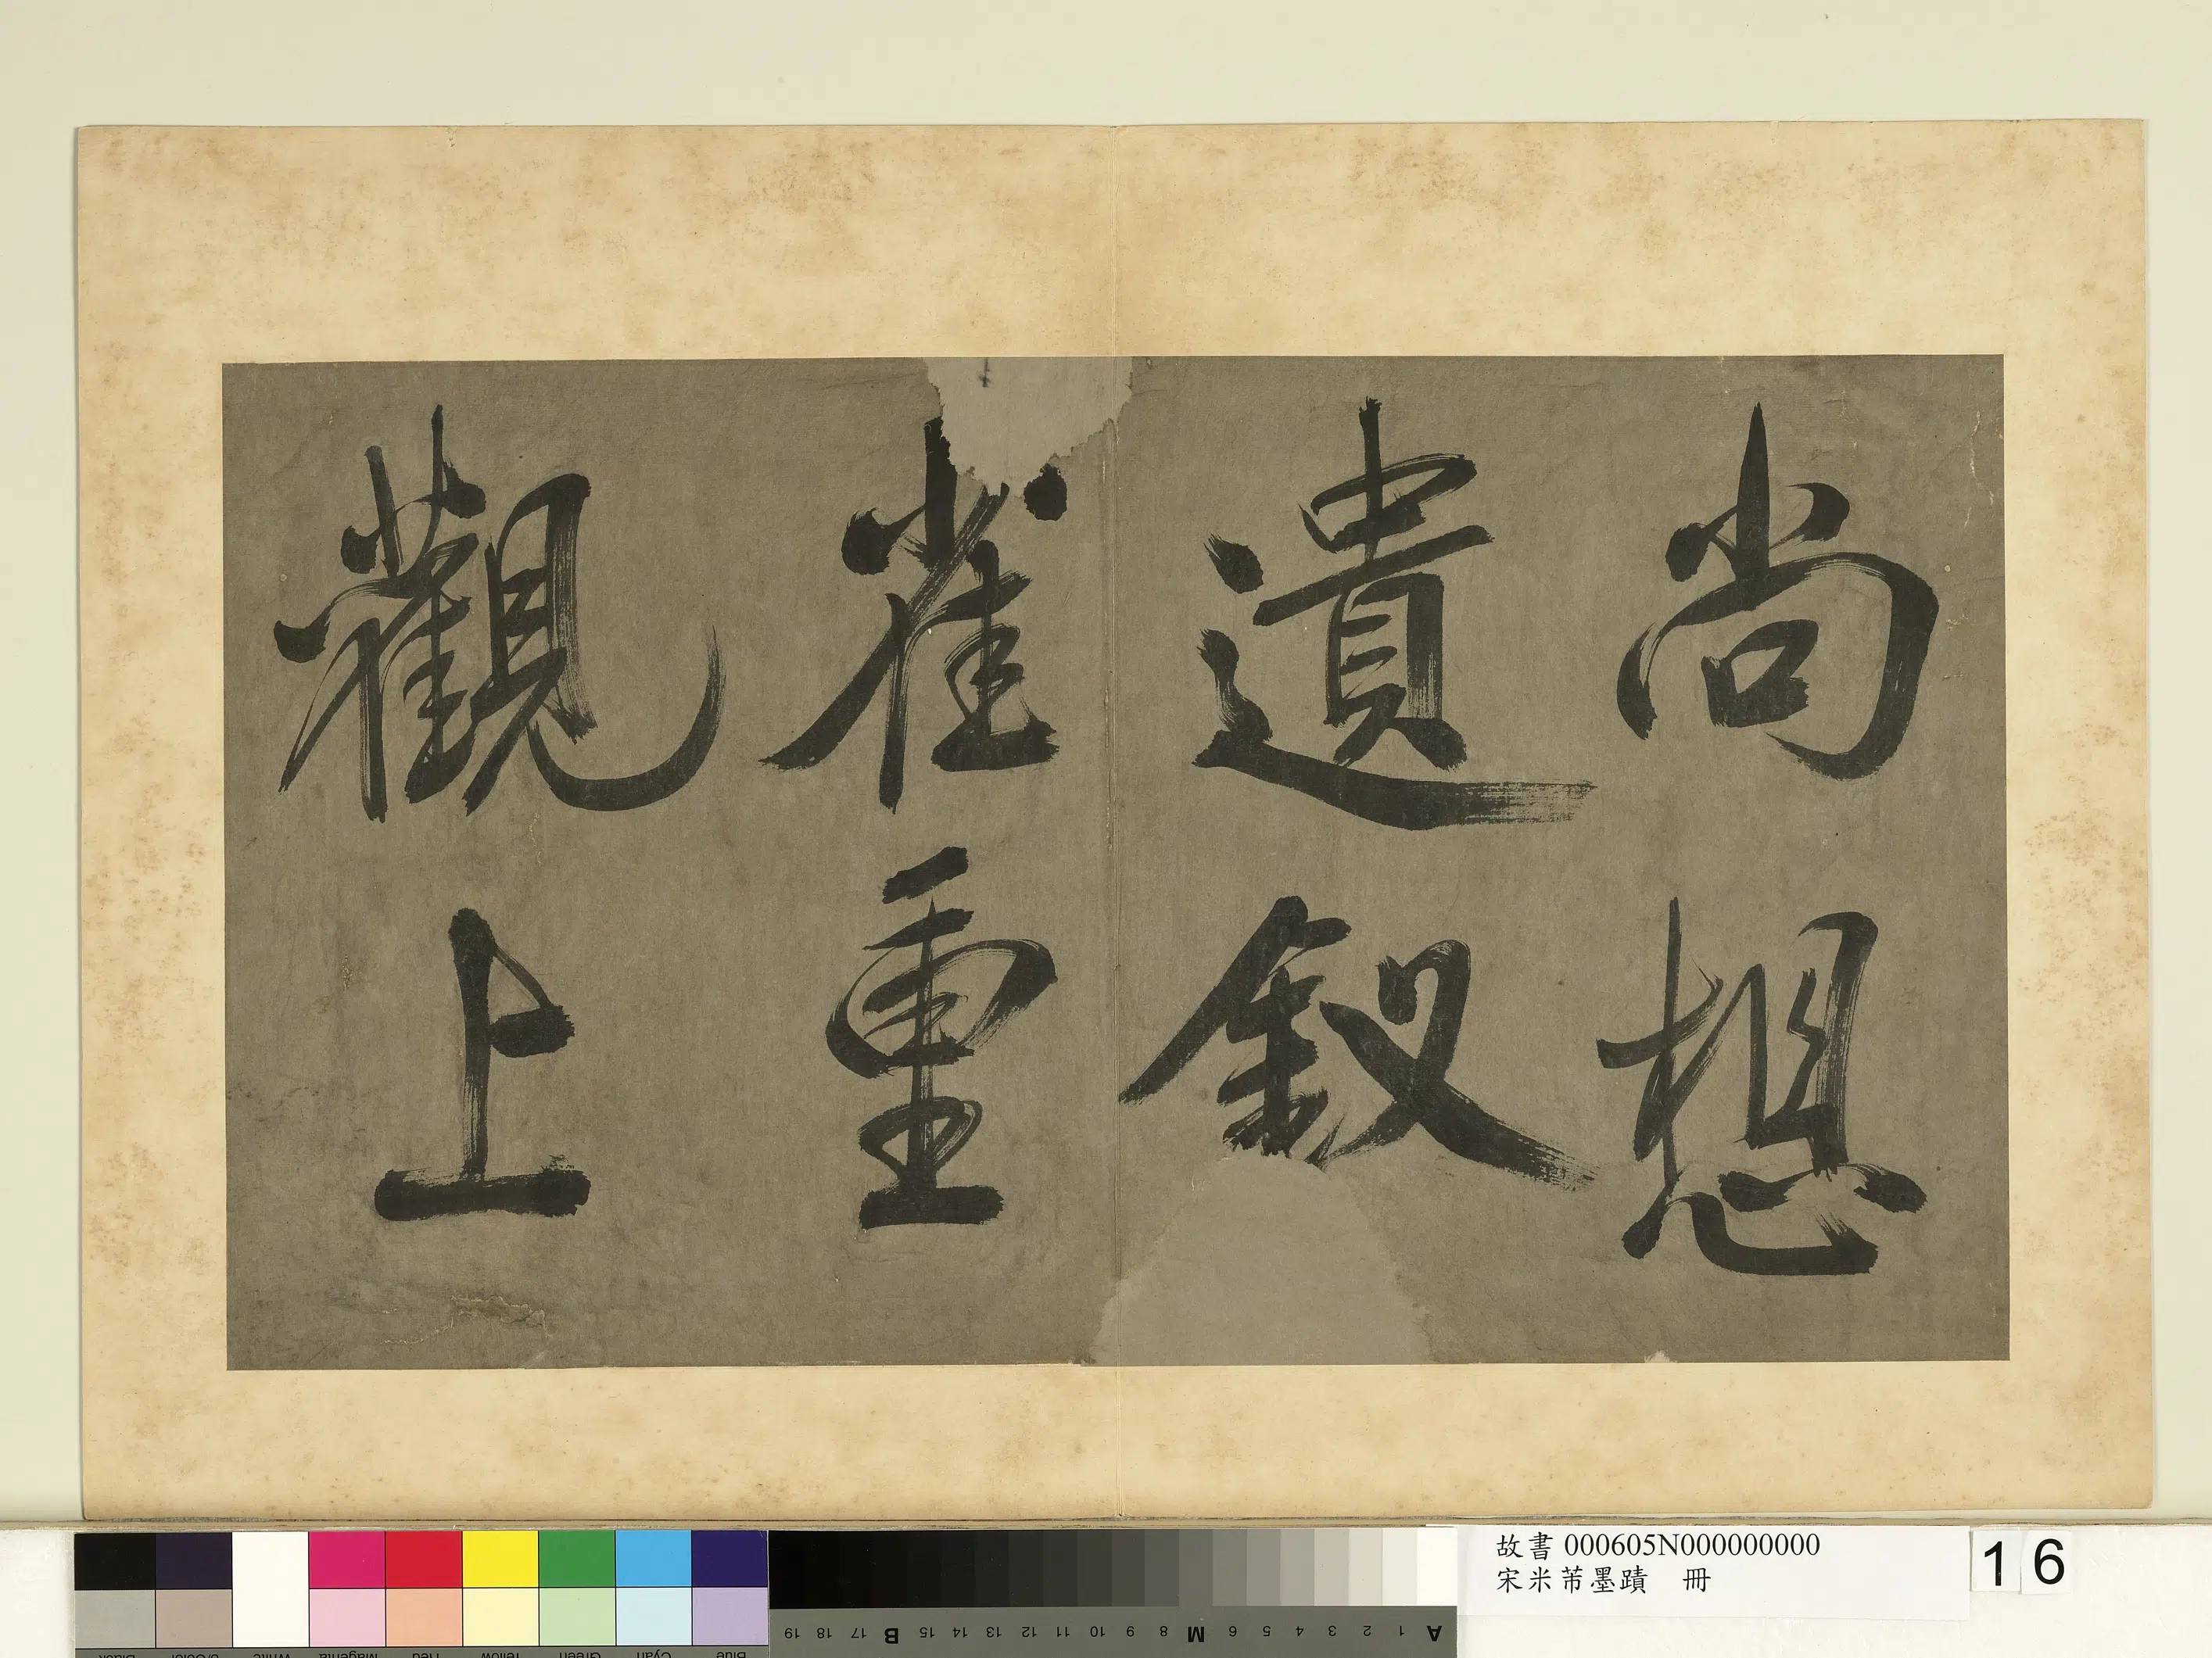 尚想
遺釵
雀重
觀上
故書 000605N000000000
宋米芾墨蹟 冊
16
A 1 2 3 4 5 6 M 8 9 10 11 12 13 14 15 B 17 18 19
Blue Cyan Green Yellow Red Magenta White 3/Color Black